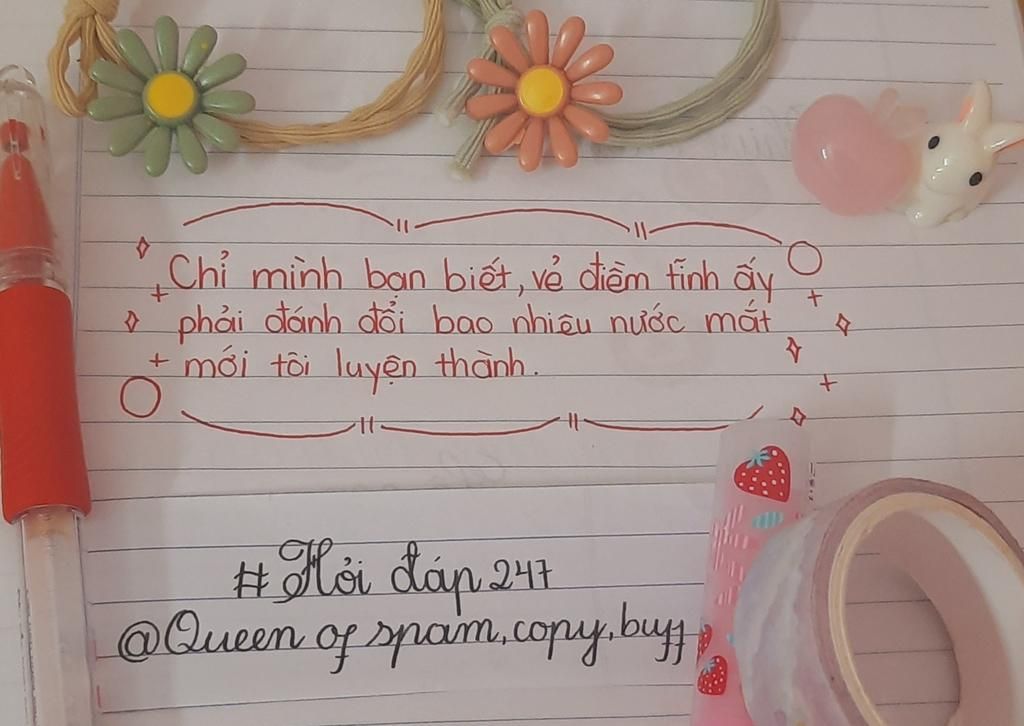 Chỉ mình bạn biết, vẻ điềm tĩnh ấy
phải đánh đổi bao nhiêu nước mắt
mới tôi luyện thành.
#Hỏi đáp 247
@Queen of spam, copy, buff